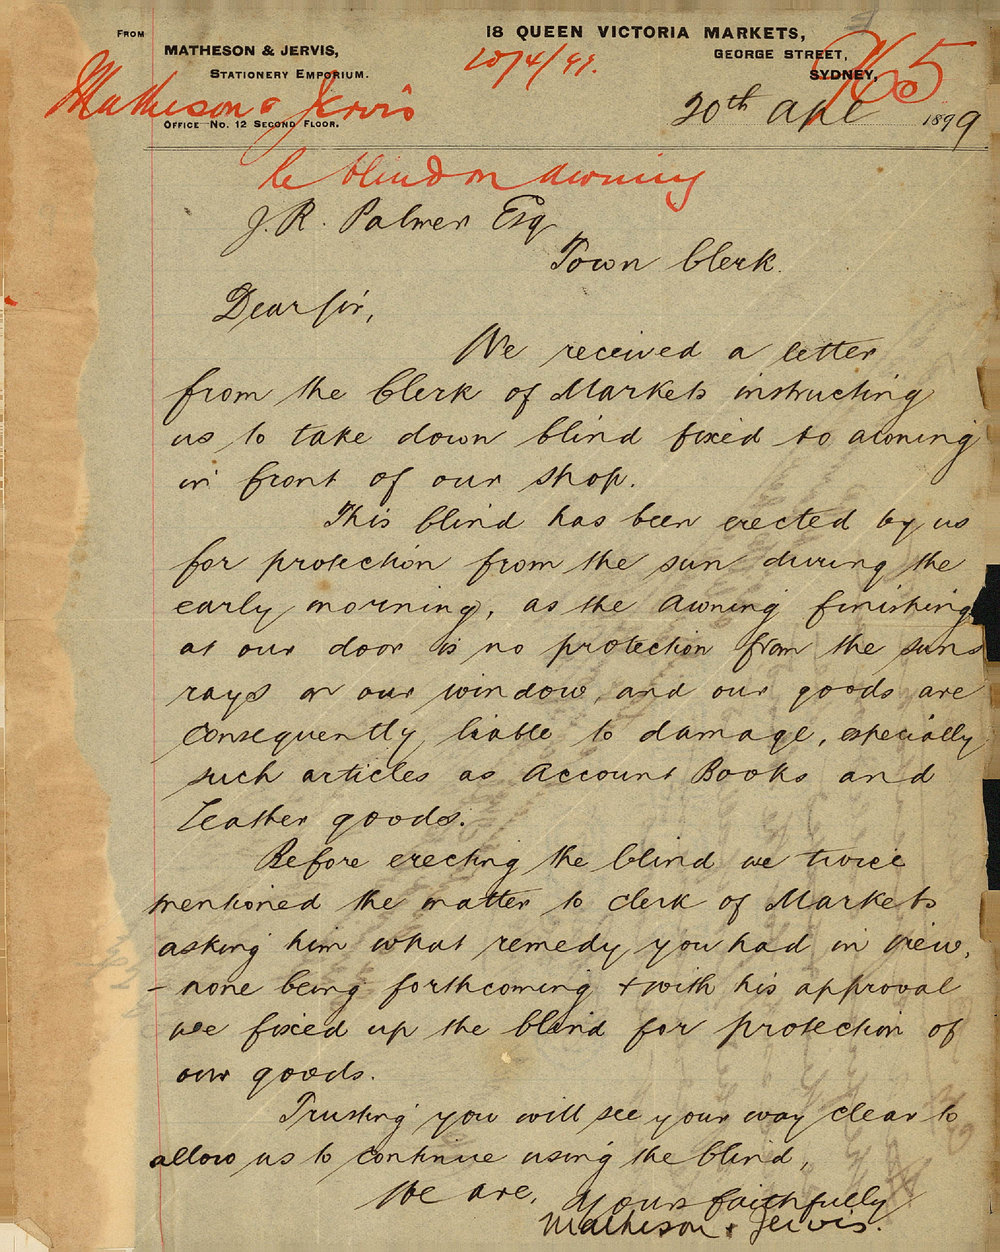 FROM
MATHESON & JERVIS,
STATIONERY EMPORIUM.
OFFICE No. 12 SECOND FLOOR.
18 QUEEN VICTORIA MARKETS,
GEORGE STREET,
SYDNEY,
20th Apl 1899
Matheson & Jervis
re blind on awning
J. R. Palmer Esq
Town Clerk.
Dear Sir,
We received a letter
from the Clerk of Markets instructing
us to take down blind fixed to awning
in front of our shop.
This blind has been erected by us
for protection from the sun during the
early morning, as the awning finishing
at our door is no protection from the suns
rays on our window, and our goods are
consequently liable to damage, especially
such articles as Account Books and
Leather goods.
Before erecting the blind we twice
mentioned the matter to Clerk of Markets
asking him what remedy you had in view,
- none being forthcoming + with his approval
we fixed up the blind for protection of
our goods.
Trusting you will see your way clear to
allow us to continue using the blind,
We are, Yours faithfully
Matheson & Jervis.